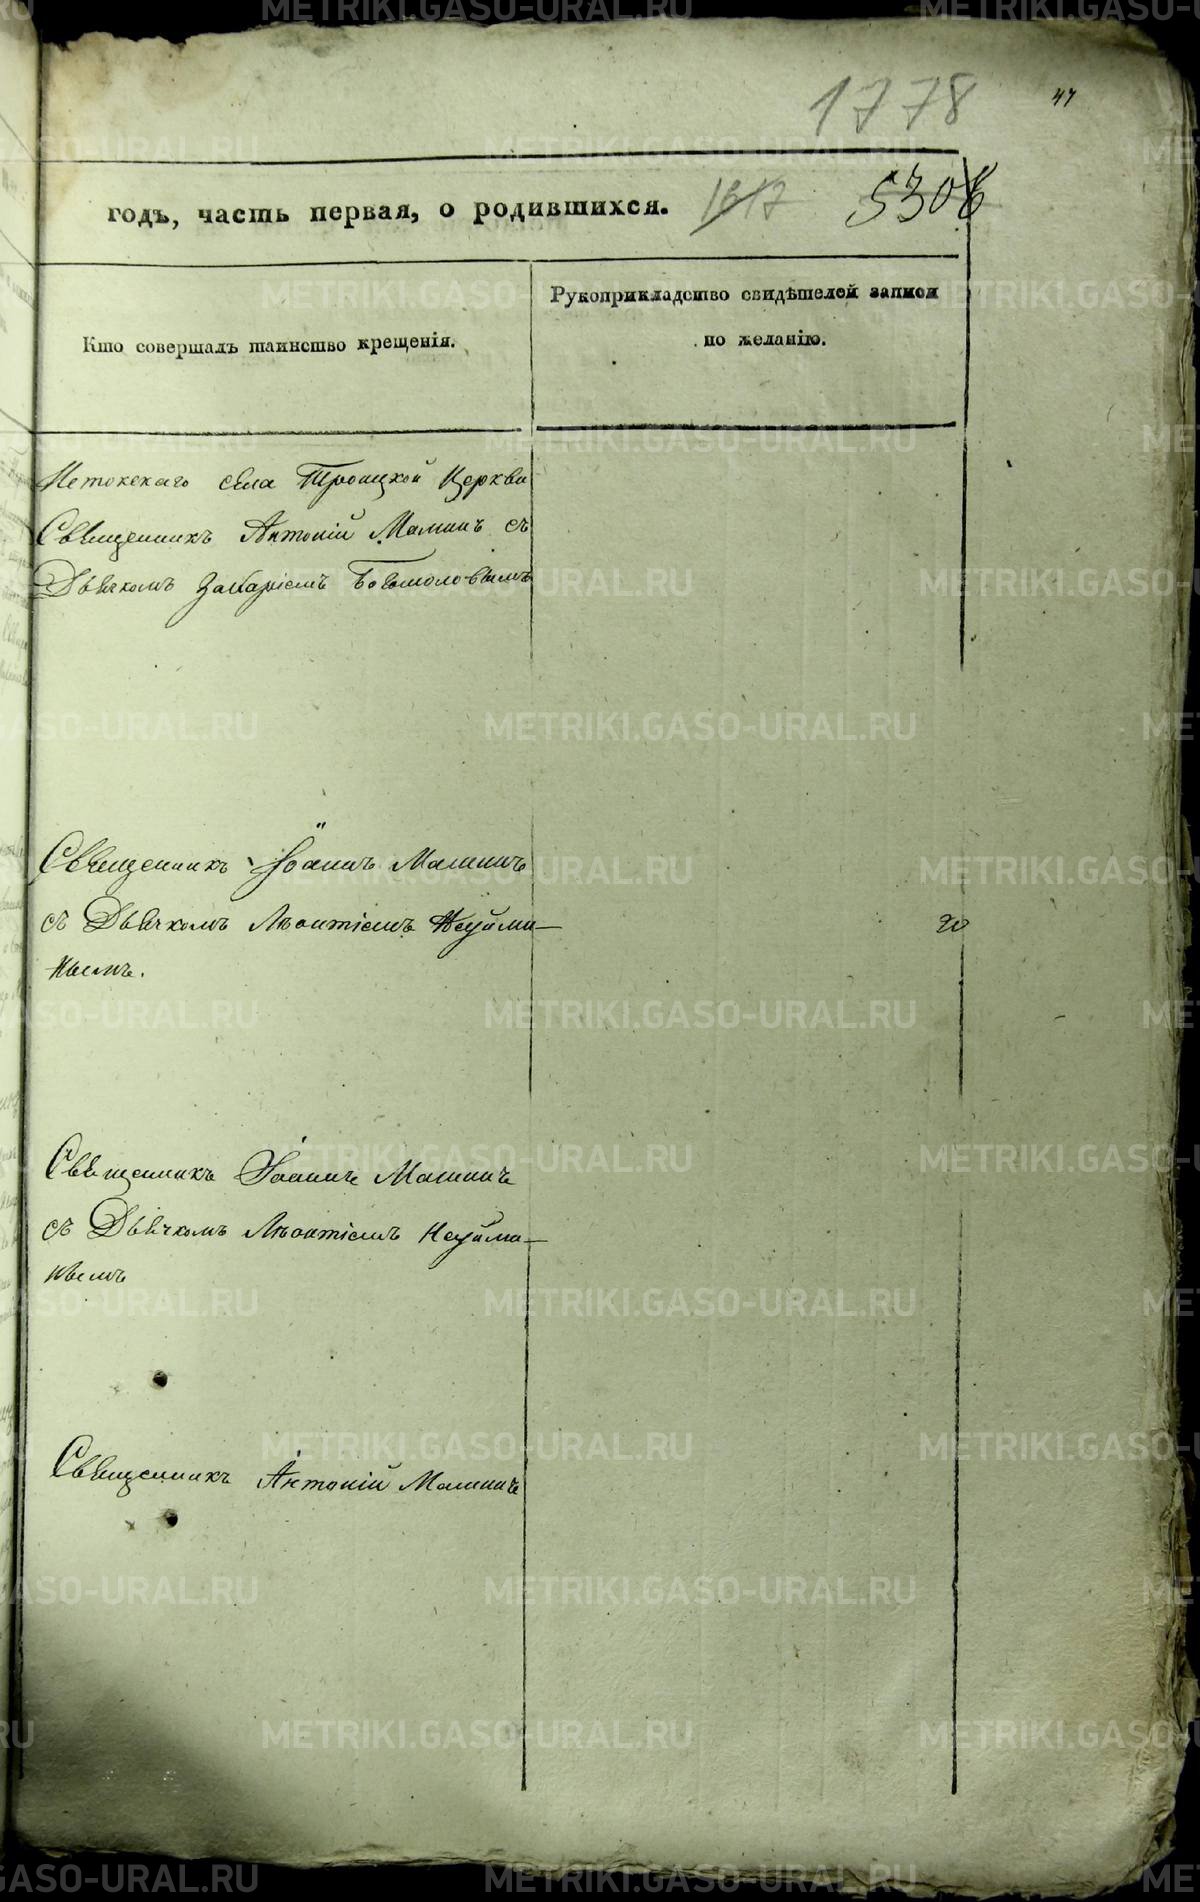 1778
47
годъ, часть первая, о родившихся. 1617 530
Кто совершалъ таинство крещенія.
Рукоприкладство свидѣтелей записи
по желанію.
села Троицкой Церкви
Священникъ Антоній Маминъ съ
Дьячкомъ Захаріемъ Богомоловымъ
Священникъ Іоаннъ Маминъ
съ Дьячкомъ Лѣонтіемъ Неуйми-
нымъ.
20
Священникъ Іоаннъ Маминъ
съ Дьячкомъ Лѣонтіемъ Неуйми-
нымъ
Священникъ Антоній Маминъ
METRIKI.GASO-URAL.RU